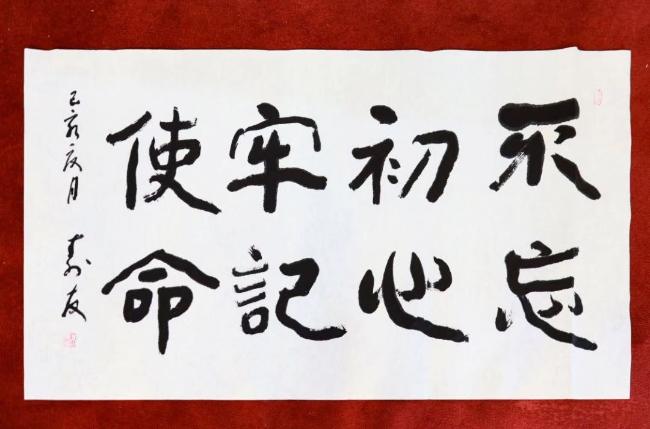 不忘
初心
牢記
使命
己亥夏月 寿友